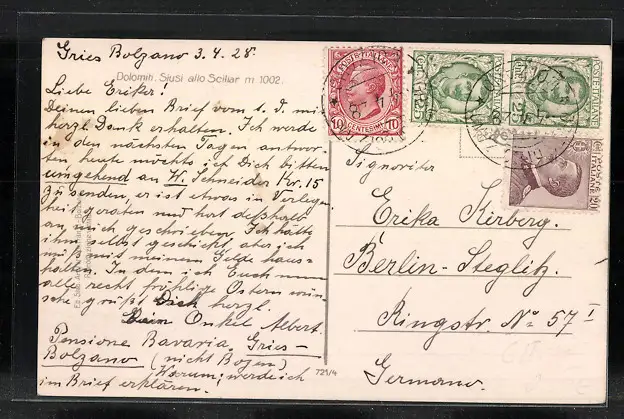 Gries Bolzano 3.4.28.
Dolomiti. Siusi allo Sciliar m 1002.
Liebe Eriker!
Deinen lieben Brief vom 1. d. mit
herzl. Dank erhalten. Ich werde
in den nächsten Tagen antwor-
ten, heute möchte ich Dich bitten
umgehend an W. Schneider Kr. 15
zu senden, er ist etwas in Verlegen-
heit geraten und hat deßhalb
an mich geschrieben. Ich hätte
ihm selbst geschickt, aber ich
muß mit meinem Gelde haus-
halten. In dem ich Euch nun
alle recht fröhliche Ostern wün-
sche grüßt Dich herzl.
Dein Onkel Albert
Pensione Bavaria Gries-
Bolzano (nicht Bozen)
Warum, werde ich
im Brief erklären.
723/4
POSTE ITALIANE
CENTESIMI
10
25
25
20
Signorita
Erika Kirberg.
Berlin-Steglitz.
Ringstr. No 57 I
Germano.